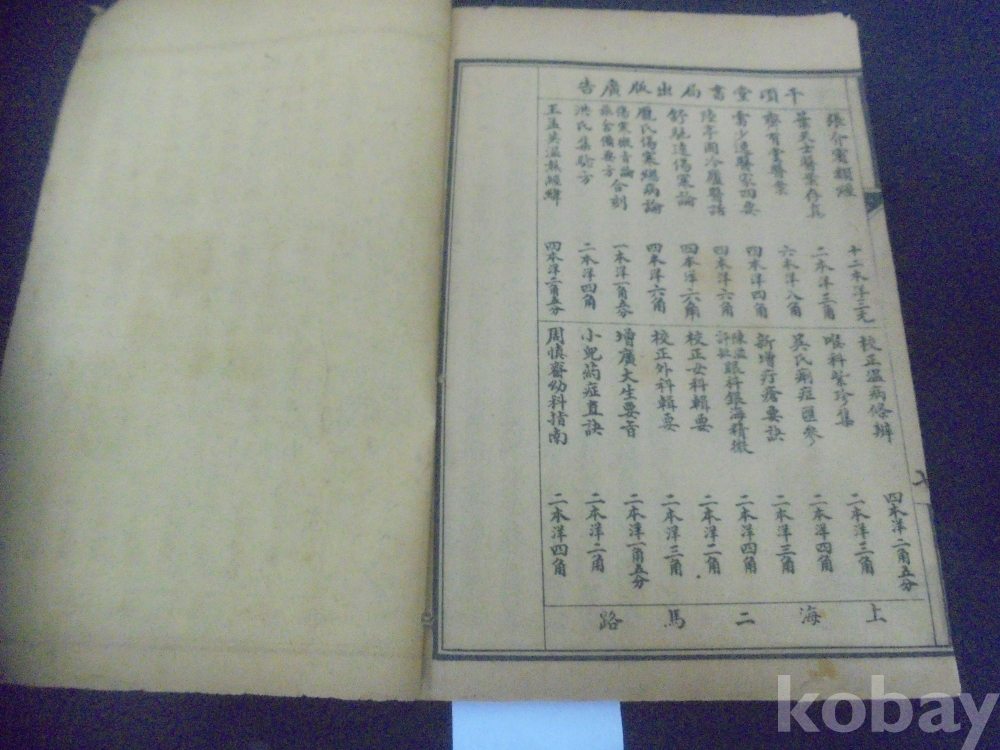 千頃堂書局出版廣告
張介賓類經 十二本洋二元
葉天士醫案存真 二本洋三角
齊有堂醫案 六本洋八角
喻少逸醫家四要 四本洋四角
陸亭圃冷廬醫話 四本洋六角
舒馳遠傷寒論 四本洋六角
龐氏傷寒總病論 四本洋六角
傷寒微旨論 藥舍備要方 合刻 一本洋一角五分
洪氏集驗方 二本洋四角
王孟英溫熱經緯 四本洋二角五分
校正溫病條辨 四本洋二角五分
喉科紫珍集 二本洋三角
吳氏痢症匯參 二本洋四角
新增疔瘡要訣 二本洋三角
眼科銀海精微 二本洋四角
校正女科輯要 二本洋二角
校正外科輯要 二本洋三角
增廣大生要旨 二本洋一角五分
小兒藥症直訣 二本洋二角
周慎齋幼科指南 二本洋四角
上海二馬路
kobay